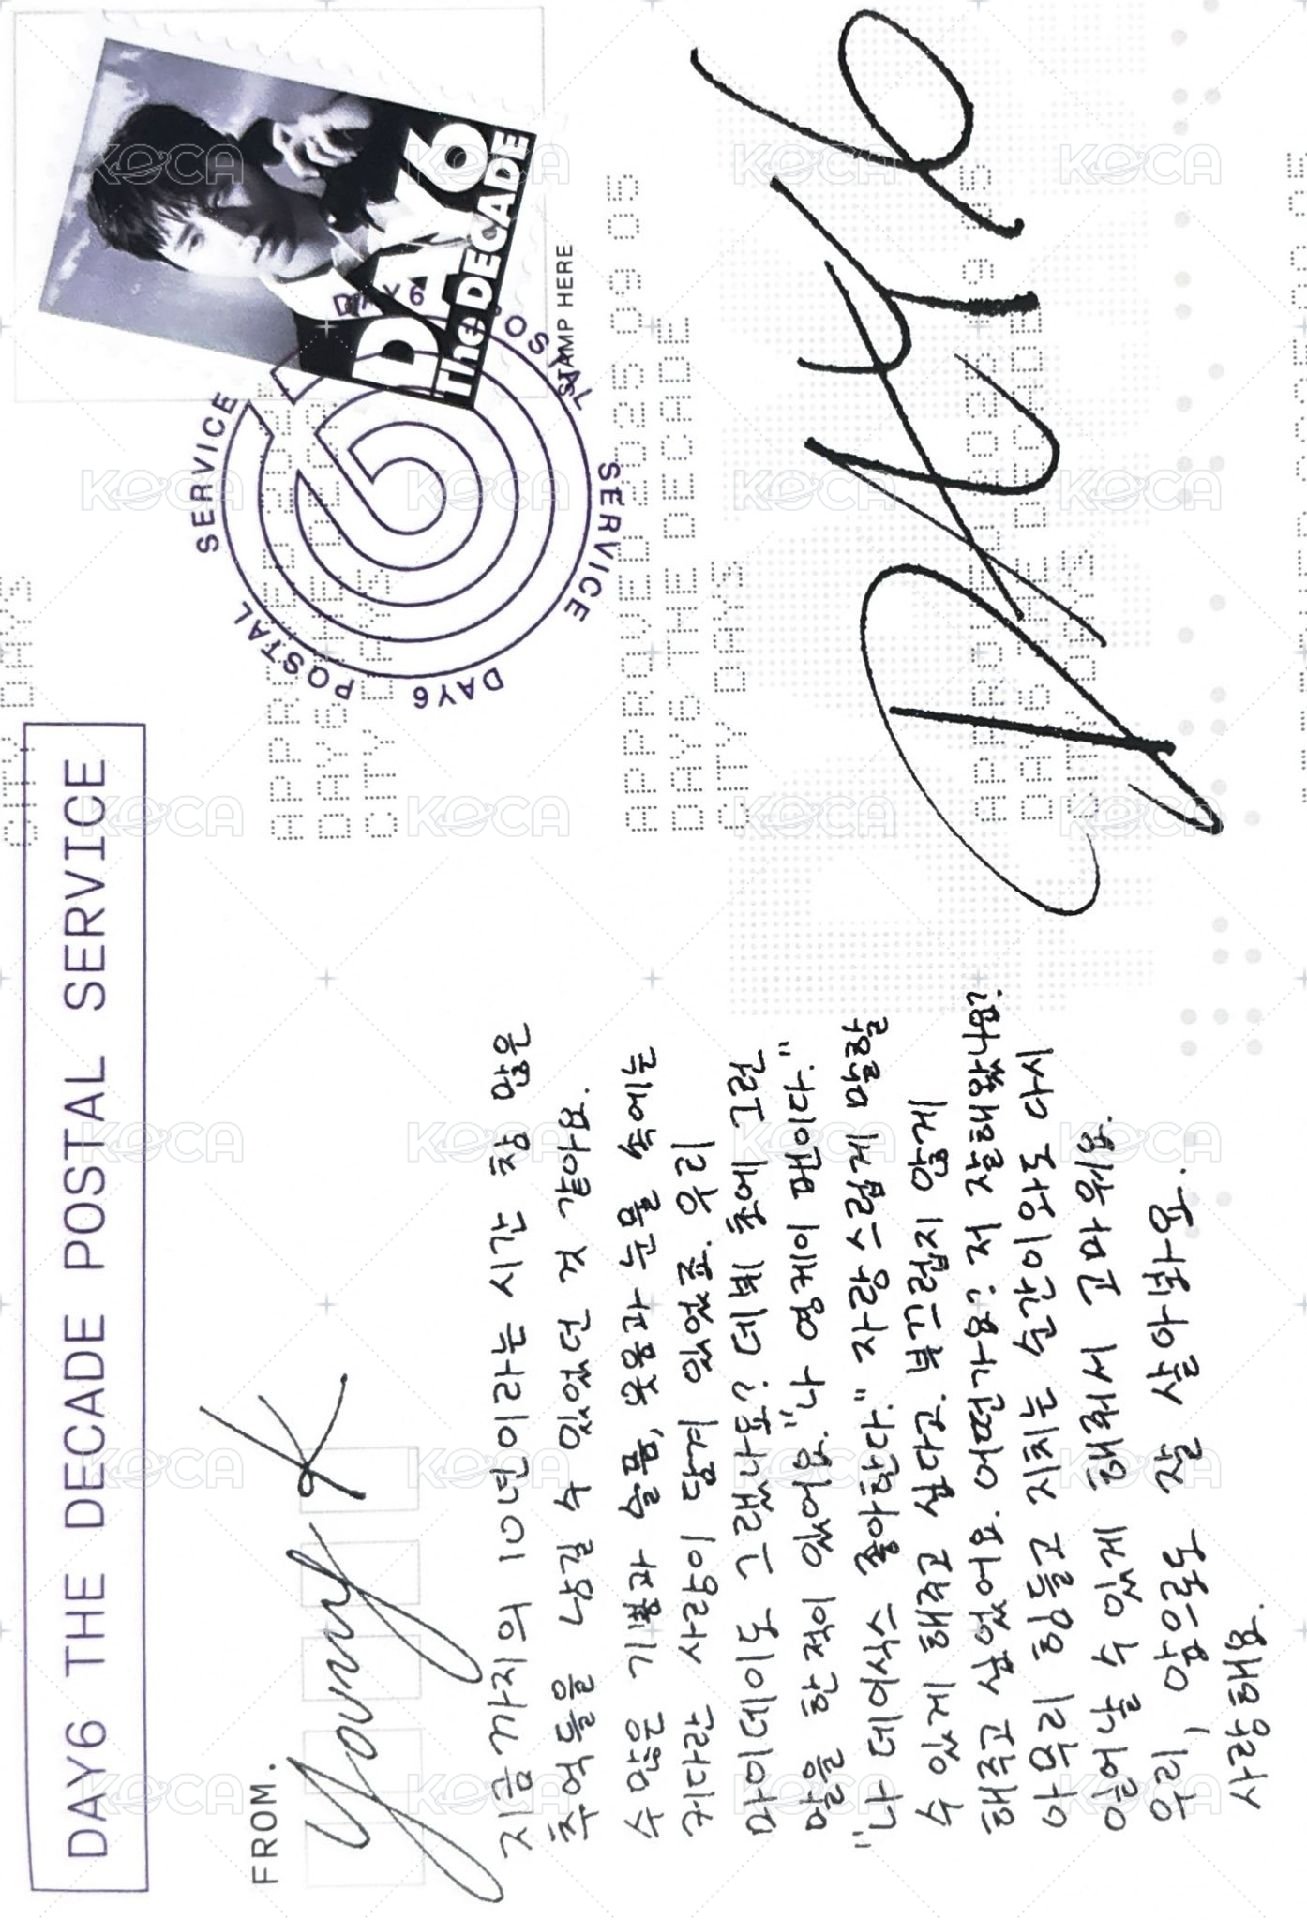 DAY6 THE DECADE POSTAL SERVICE
FROM.
Young K
지금까지의 10년이라는 시간 참 많은
추억들을 남길 수 있었던 것 같아요.
수 많은 기쁨과 슬픔, 웃음과 눈물 속에는
커다란 사랑이 담겨 있었죠. 우리
마이데이도 그랬나요? 데뷔 초에 그런
말을 한 적이 있어요. "나 영케이 팬이다."
"나 데이식스 좋아한다." 자랑스럽게 말할
수 있게 해주고 싶다고. 부끄럽지 않게
해주고 싶었어요. 어떤가요? 저 잘해왔나요?
아무리 힘들고 지치는 순간이 와도 다시
일어날 수 있게 해줘서 고마워요.
우리, 앞으로도 잘 살아봐요.
사랑해요.
SERVICE
DAY6 POSTAL SERVICE
DAY6
DAY6
The DECADE
STAMP HERE
APPROVED 2025 09 05
DAY6 THE DECADE
CITY DAYS
APPROVED 2025 09 05
DAY6 THE DECADE
CITY DAYS
DAY6
KOCA